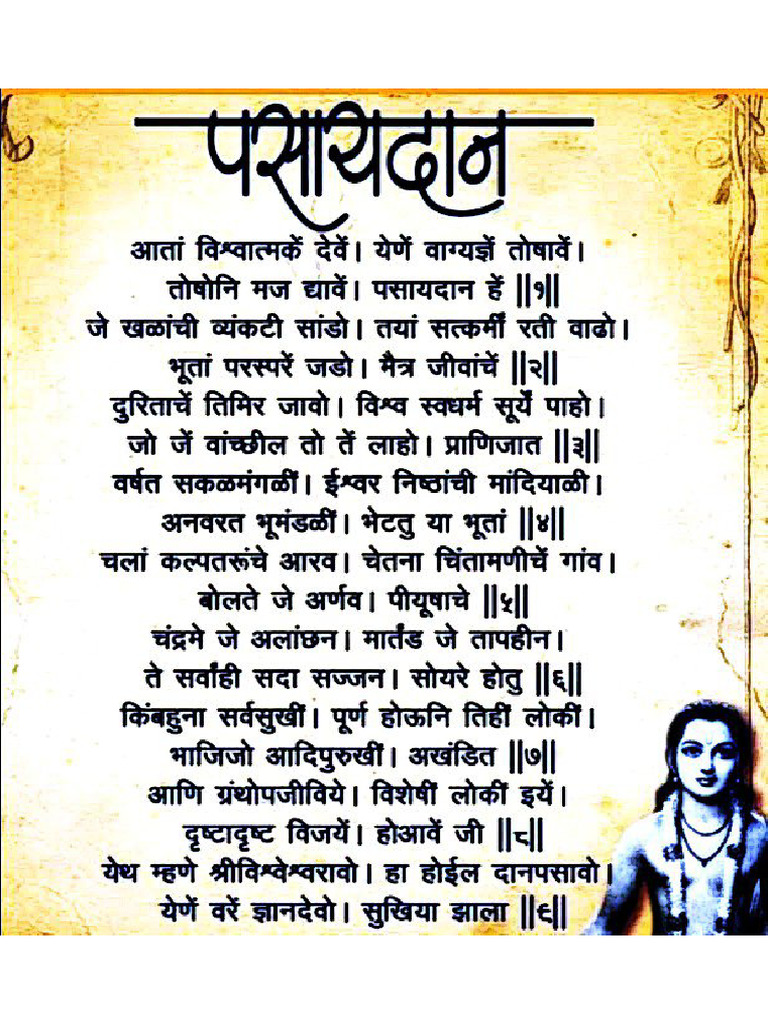 पसायदान
आतां विश्वात्मकें देवें। येणें वाग्यज्ञें तोषावें।
तोषोनि मज द्यावें। पसायदान हें ||१||
जे खळांची व्यंकटी सांडो। तयां सत्कर्मीं रती वाढो।
भूतां परस्परें जडो। मैत्र जीवांचें ||२||
दुरिताचें तिमिर जावो। विश्व स्वधर्म सूर्यें पाहो।
जो जें वांच्छील तो तें लाहो। प्राणिजात ||३||
वर्षत सकळमंगळीं। ईश्वर निष्ठांची मांदियाळी।
अनवरत भूमंडळीं। भेटतु या भूतां ||४||
चलां कल्पतरूंचे आरव। चेतना चिंतामणीचें गांव।
बोलते जे अर्णव। पीयूषाचे ||५||
चंद्रमे जे अलांछन। मार्तंड जे तापहीन।
ते सर्वांही सदा सज्जन। सोयरे होतु ||६||
किंबहुना सर्वसुखीं। पूर्ण होऊनि तिहीं लोकीं।
भाजिजो आदिपुरुखीं। अखंडित ||७||
आणि ग्रंथोपजीविये। विशेषीं लोकीं इयें।
दृष्टादृष्ट विजयें। होआवें जी ||८||
येथ म्हणे श्रीविश्वेश्वरावो। हा होईल दानपसावो।
येणें वरें ज्ञानदेवो। सुखिया झाला ||९||